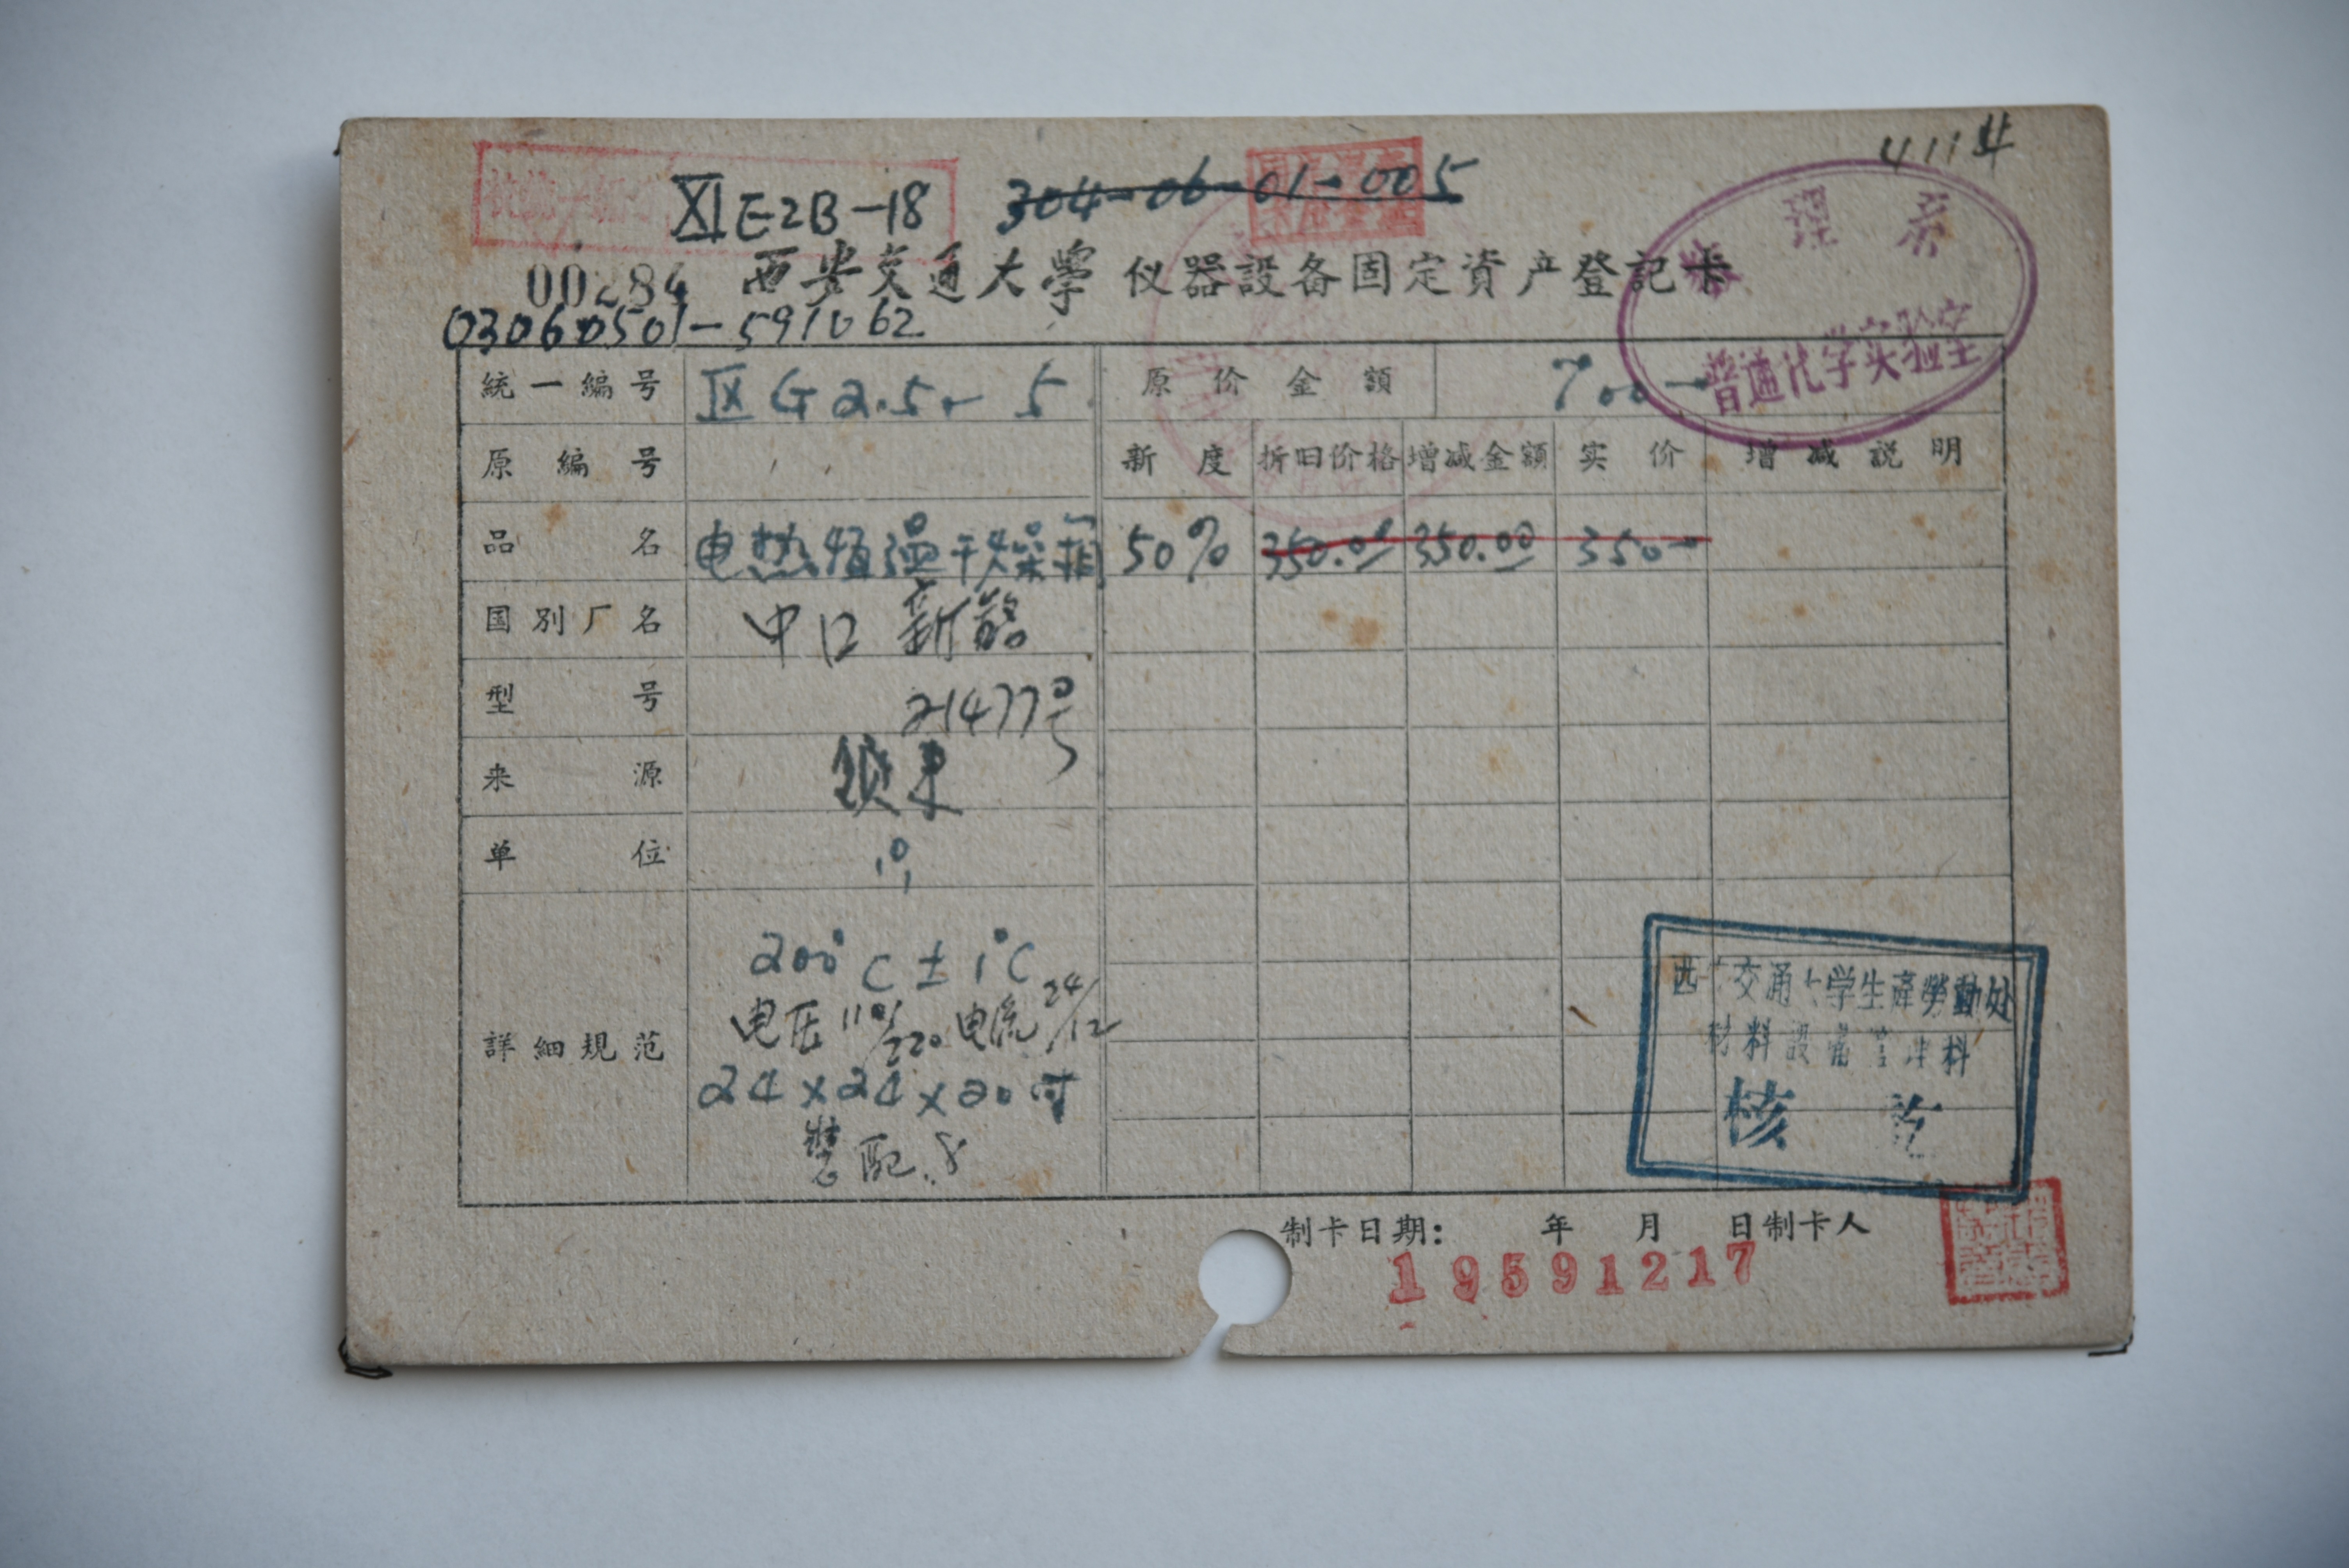 411#
XI E2B-18 304-06-01-005
00284 西安交通大學 仪器設备固定資产登記卡
03060501-591062
数理系
普通化学实验室
統一編号 区G2.5-5 原价金額 700-
原編号 新度 折旧价格 增减金額 实价 增减説明
品名 电热恒温干燥箱 50% 350.00 350.00 350-
国別厂名 中口
型号 21477号
来源
单位
詳細規范 200°C±1°C
电压110/220 电流24/12
24×24×20吋
配
西安交通大学生產勞動处
材料設备管理科
核讫
制卡日期: 年 月 日制卡人
19591217